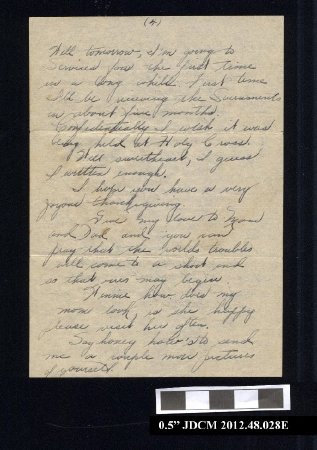 (4)
Well tomorrow, I'm going to
services for the first time
in a long while. First time
I'll be receiving the Sacraments
in about five months.
Confidentially I wish it was
being held at Holy Cross.
Well sweetheart, I guess
I written enough.
I hope you have a very
joyous thanksgiving.
Give my love to Mom
and Dad and you can
pray that the worlds troubles
will come to a short end
so that ours may begin.
Annie how does my
mom look, is she happy
please visit her often.
Say honey how's to send
me a couple more pictures
of yourself
0.5" JDCM 2012.48.028E